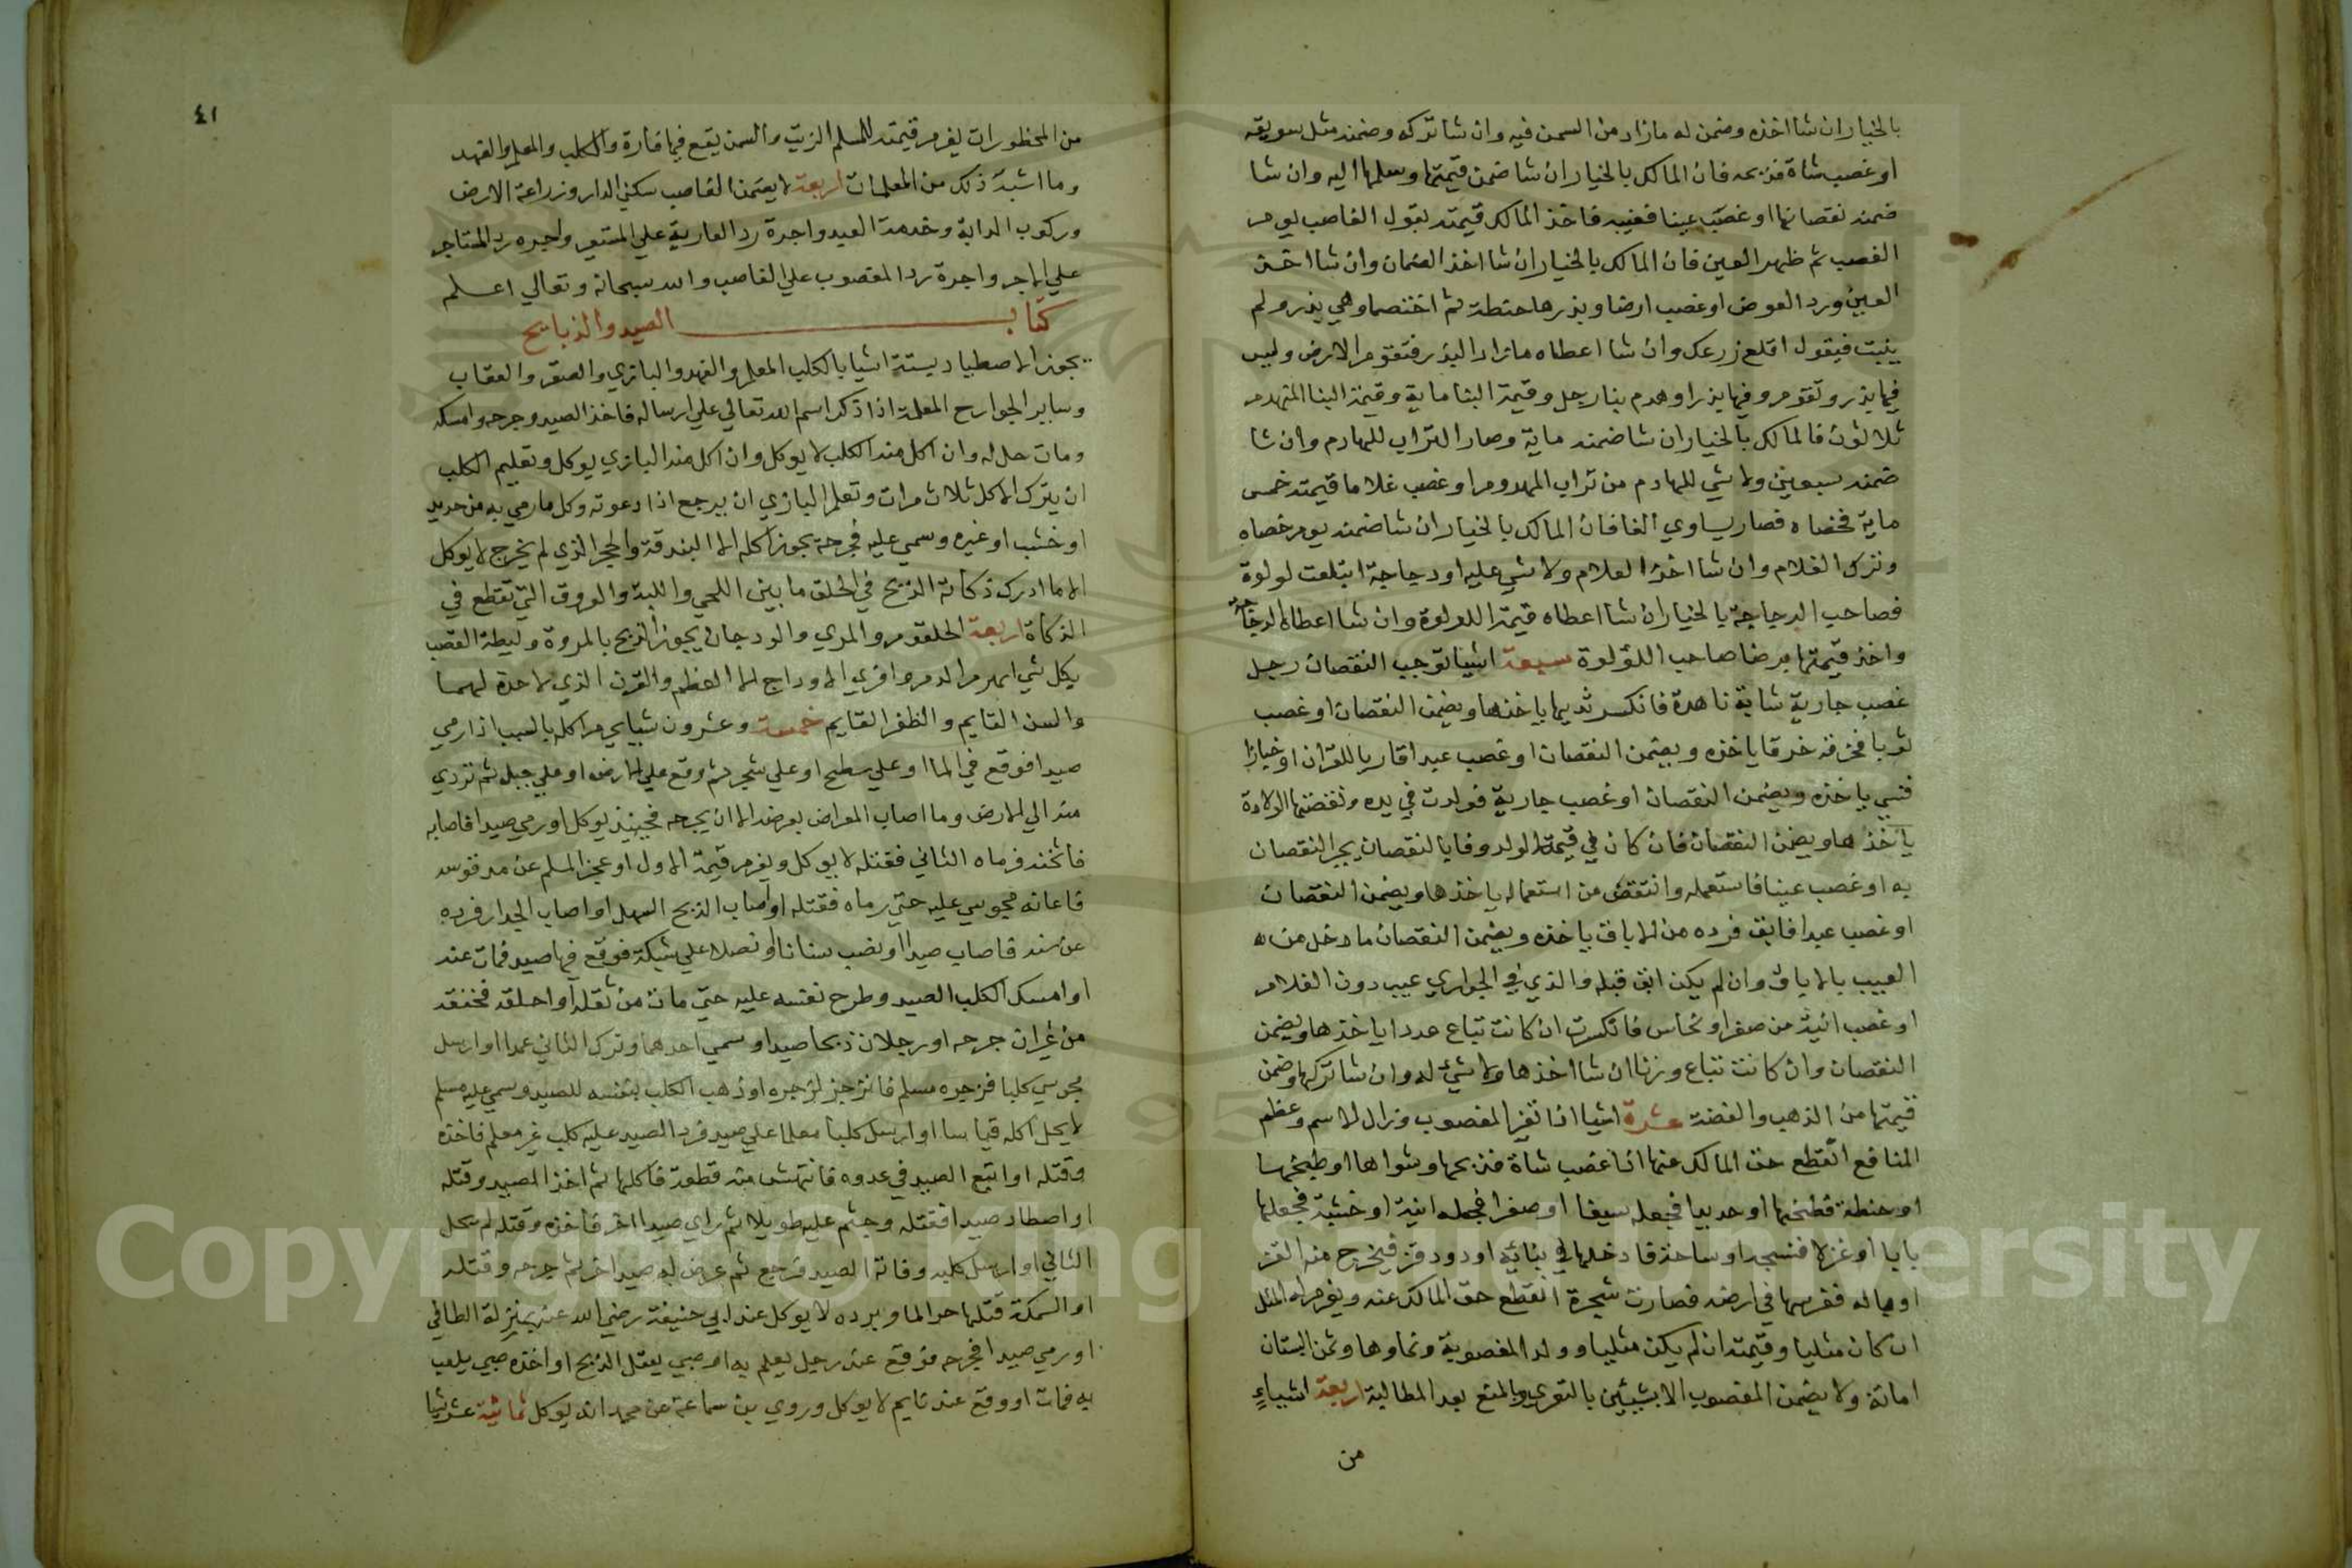 بالخيار ان شا اخذه وضمن له مازاد من السمن فيه وان شا تركه وضمنه مثل سويقه
او غصب شاة فذبحه فان المالك بالخيار ان شا ضمن قيمتها وسلمها اليه وان شا
ضمنه نقصانها او غصب عينا فغيبه فاخذ المالك قيمته بقول الغاصب يوم
الغصب ثم ظهر العين فان المالك بالخيار ان شا اخذ الضمان وان شا اخذ
العين ورد العوض او غصب ارضا وبذرها حنطة ثم اختصما وهي بذر ولم
ينبت فيقول اقلع زرعك وان شا اعطاه مازاد البذر فتقوم الارض وليس
فيها بذر وتقوم وفيها بذر او هدم بنا رجل وقيمة البنا ماية وقيمة البنا المنهدم
ثلاثون فالمالك بالخيار ان شا ضمنه ماية وصار التراب للهادم وان شا
ضمنه سبعين ولا شي للهادم من تراب المهدوم او غصب غلاما قيمته خمس
ماية فخصاه فصار يساوي الفا فان المالك بالخيار ان شا ضمنه يوم خصاه
وترك الغلام وان شا اخذ الغلام ولا شي عليه او دجاجة ابتلعت لولوة
فصاحب الدجاجة بالخيار ان شا اعطاه قيمة اللولوة وان شا اعطاه الدجاجة
واخذ قيمتها برضا صاحب اللؤلوة سبعة اشيا توجب النقصان رجل
غصب جارية شابة ناهدة فانكسر ثديها ياخذها ويضمن النقصان او غصب
ثوبا فخرقه خرقا ياخذه ويضمن النقصان او غصب عبدا قاريا للقران او خبازا
فنسي ياخذه ويضمن النقصان او غصب جارية فولدت في يده ونقصتها الولادة
ياخذها ويضمن النقصان فان كان في قيمة الولد وفا بالنقصان يجبر النقصان
به او غصب عينا فاستعمله وانتقض من استعماله ياخذها ويضمن النقصان
او غصب عبدا فابق فرده من الاباق ياخذه ويضمن النقصان ما دخل من
العيب بالاباق وان لم يكن ابق قبله والذي في الجواري عيب دون الغلام
او غصب انية من صفر او نحاس فانكسرت ان كانت تباع عددا ياخذها ويضمن
النقصان وان كانت تباع وزنا ان شا اخذها ولا شيء له وان شا تركها وضمن
قيمتها من الذهب والفضة عشرة اشيا اذا تغير المغصوب وزال الاسم وعظم
المنافع انقطع حق المالك عنها اذا غصب شاة فذبحها وشواها او طبخها
او حنطة فطحنها او حديدا فجعله سيفا او صفرا فجعله انية او خشبة فجعلها
بابا او غزلا فنسجه او ساحة فادخلها في بنائه او دود قز فيخرج منه القز
او فغرسها في ارضه فصارت شجرة انقطع حق المالك عنه ويغرم له المثل
ان كان مثليا وقيمته ان لم يكن مثليا وولد المغصوبة ونماوها وثمن البستان
امانة ولا يضمن المغصوب الا بشيئين بالتعدي وبالمنع بعد المطالبة اربعة اشياء
من
٤١
من المحظورات يغرم قيمته للمسلم الزيت والسمن يقع فيها فارة والكلب والمعلم والفهد
وما اشبه ذلك من المعلمات اربعة لا يضمن الغاصب سكني الدار وزراعة الارض
وركوب الدابة وخدمة العبد واجرة رد العارية علي المستعير واجره رد المستاجر
علي الاجر واجرة رد المغصوب علي الغاصب والله سبحانه وتعالي اعلم
كتاب الصيد والذبايح
يجوز الاصطياد بستة اشيا بالكلب المعلم والفهد والبازي والصقر والعقاب
وساير الجوارح المعلمة اذا ذكر اسم الله تعالي علي ارساله فاخذ الصيد وجرحه وامسكه
ومات حل له وان اكل منه الكلب لا يوكل وان اكل منه البازي يوكل وتعليم الكلب
ان يترك الاكل ثلاث مرات وتعلم البازي ان يرجع اذا دعوته وكل ما رمي به من حديد
او خشب او غيره وسمي عليه فجرحه يجوز اكله الا البندقة والحجر الذي لم يخرج لا يوكل
الا ما ادرك ذكاته الذبح في الحلق ما بين اللحي واللبة والعروق التي تقطع في
الذكاة اربعة الحلقوم والمري والودجان يجوز الذبح بالمروة وليطة القصب
بكل شي انهر الدم وافري الاوداج الا العظم والقرن الذي لا حدة لهما
والسن القايم والظفر القايم خمسة وعشرون شيا يحرم اكله بالسبب اذا رمي
صيدا فوقع في الما او علي سطح او علي شجر ثم وقع علي الارض او علي جبل ثم تردي
منه الي الارض وما اصاب المعراض بعرضه الا ان يجرحه فحينيذ يوكل او رمي صيدا فاصابه
فاثخنه فرماه الثاني فقتله لا يوكل ويغرم قيمة الاول او عجز المسلم عن مد قوسه
فاعانه مجوسي عليه حتي رماه فقتله او اصاب الذبح السهل او اصاب الجدار فرده
عن سنه فاصاب صيدا او نصب سنانا او نصلا علي شبكة فوقع فيها صيد فمات عنه
او امسك الكلب الصيد وطرح نفسه عليه حتي مات من ثقله او احلقه فخنقه
من غير ان جرحه او رجلان ذبحا صيدا وسمي احدهما وترك الثاني عمدا او ارسل
مجوسي كلبا فزجره مسلم فانزجر لزجره او ذهب الكلب بنفسه للصيد وسمي عليه مسلم
لا يحل اكله قياسا او ارسل كلبا معلما علي صيد فرد الصيد عليه كلب غير معلم فاخذه
وقتله او اتبع الصيد في عدوه فانتهش منه قطعة فاكلها ثم اخذ الصيد وقتله
او اصطاد صيدا فقتله وجثم عليه طويلا ثم راي صيدا اخر فاخذه وقتله لم يحل
الثاني او ارسل كلبه وفاته الصيد فرجع ثم عرض له صيد اخر ثم جرحه وقتله
او السمكة قتلها حر الما وبرده لا يوكل عند ابي حنيفة رضي الله عنه بمنزلة الطافي
او رمي صيدا فجرحه فوقع عند رجل يعلم به او صبي يعقل الذبح او اخذه صبي يلعب
به فمات او وقع عند نايم لا يوكل وروي بن سماعة عن محمد انه يوكل ثمانية عشر شيا
Copyright © King Saud University